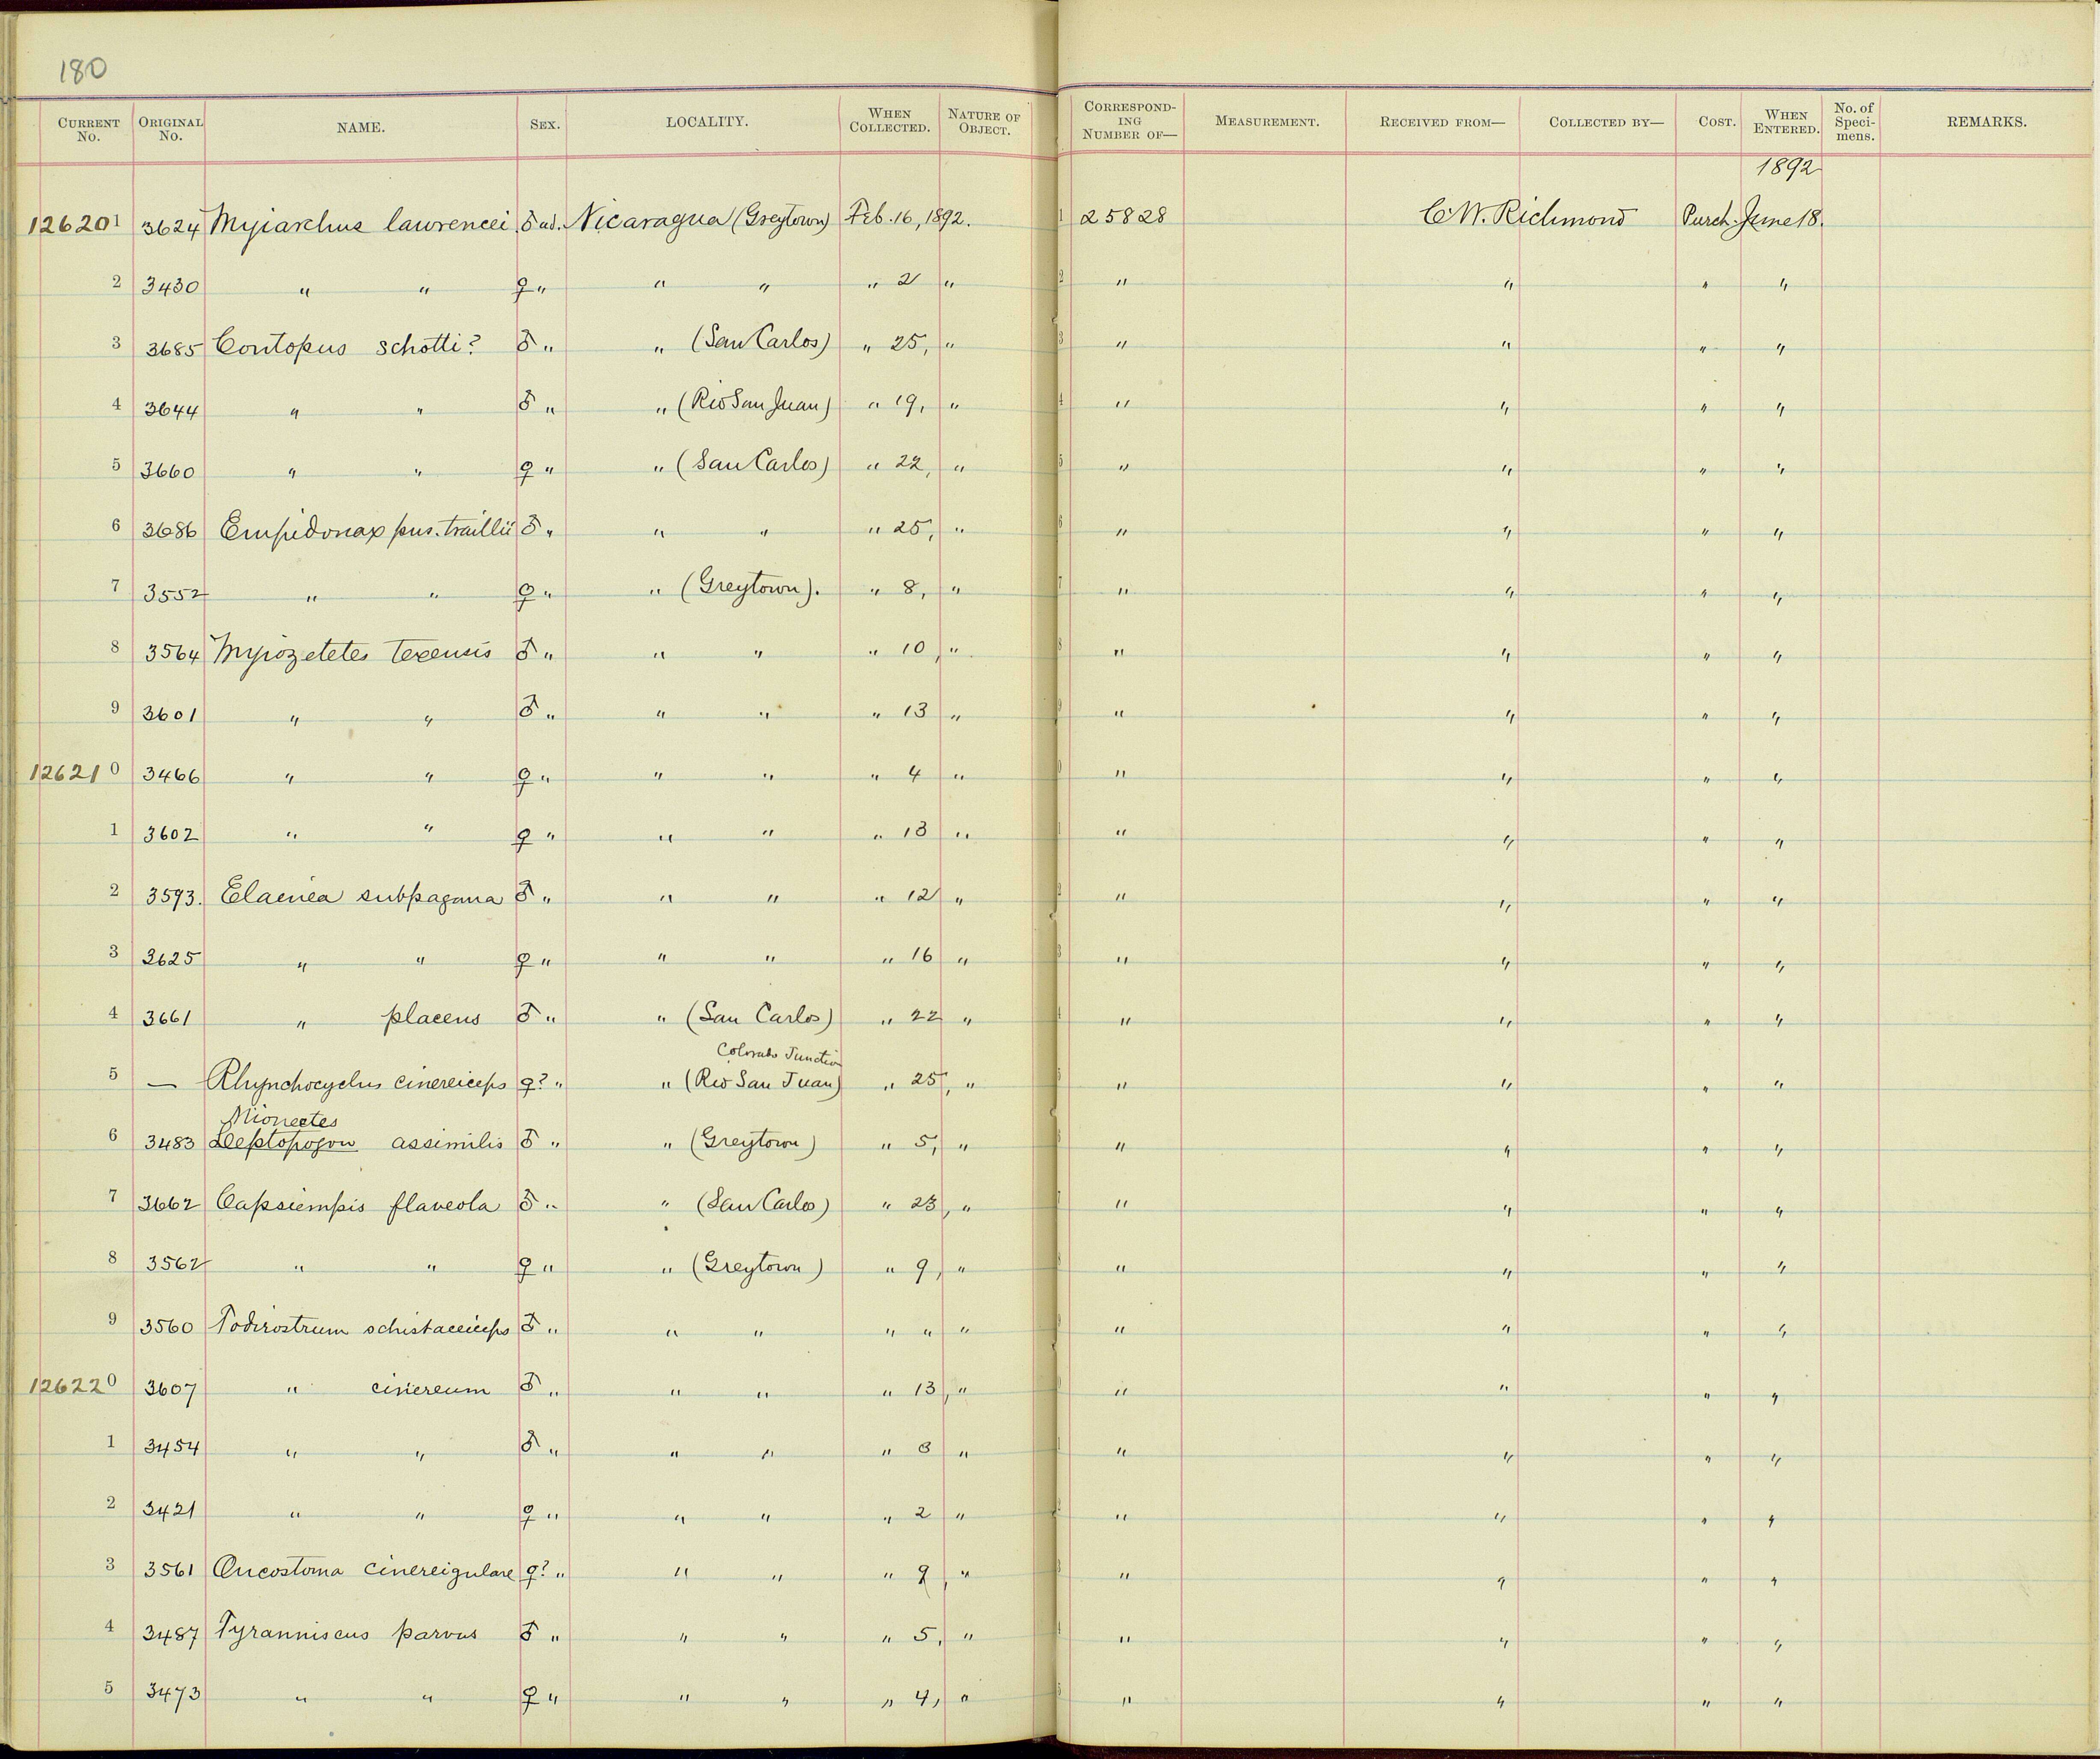 180
CURRENT No. ORIGINAL No. NAME. SEX. LOCALITY. WHEN COLLECTED. NATURE OF OBJECT. CORRESPONDING NUMBER OF— MEASUREMENT. RECEIVED FROM— COLLECTED BY— COST. WHEN ENTERED. No. of Specimens. REMARKS.
1892
12620 1 3624 Myiarchus lawrencei ♂ ad. Nicaragua (Greytown) Feb. 16, 1892. 1 25828 C.W. Richmond Purch. June 18.
2 3430 " " ♀ " " " " 2 " 2 " " " "
3 3685 Contopus schotti? ♂ " " (San Carlos) " 25, " 3 " " " "
4 3644 " " ♂ " " (Rio San Juan) " 19, " 4 " " " "
5 3660 " " ♀ " " (San Carlos) " 22, " 5 " " " "
6 3686 Empidonax pus. traillii ♂ " " " " 25, " 6 " " " "
7 3552 " " ♀ " " (Greytown). " 8, " 7 " " " "
8 3564 Myiozetetes texensis ♂ " " " " 10, " 8 " " " "
9 3601 " " ♂ " " " " 13 " 9 " " " "
12621 0 3466 " " ♀ " " " " 4 " 0 " " " "
1 3602 " " ♀ " " " " 13 " 1 " " " "
2 3593. Elaenea subpagana ♂ " " " " 12 " 2 " " " "
3 3625 " " ♀ " " " " 16 " 3 " " " "
4 3661 " placens ♂ " " (San Carlos) " 22 " 4 " " " "
Colorado Junction
5 — Rhynchocyclus cinereiceps ♀? " " (Rio San Juan) " 25, " 5 " " " "
Mionectes
6 3483 Leptopogon assimilis ♂ " " (Greytown) " 5, " 6 " " " "
7 3662 Capsiempis flaveola ♂ " " (San Carlos) " 23, " 7 " " " "
8 3562 " " ♀ " " (Greytown) " 9, " 8 " " " "
9 3560 Todirostrum schistaceiceps ♂ " " " " " " 9 " " " "
12622 0 3607 " cinereum ♂ " " " " 13, " 0 " " " "
1 3454 " " ♂ " " " " 3 " 1 " " " "
2 3421 " " ♀ " " " " 2 " 2 " " " "
3 3561 Oncostoma cinereigulare ♀? " " " " 9, " 3 " " " "
4 3487 Tyranniscus parvus ♂ " " " " 5, " 4 " " " "
5 3473 " " ♀ " " " " 4, " 5 " " " "